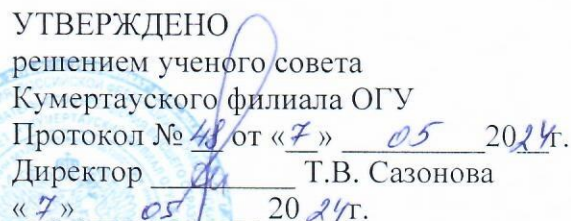 УТВЕРЖДЕНО
решением ученого совета
Кумертауского филиала ОГУ
Протокол № 48 от «7» 05 2024г.
Директор Т.В. Сазонова
«7» 05 2024г.